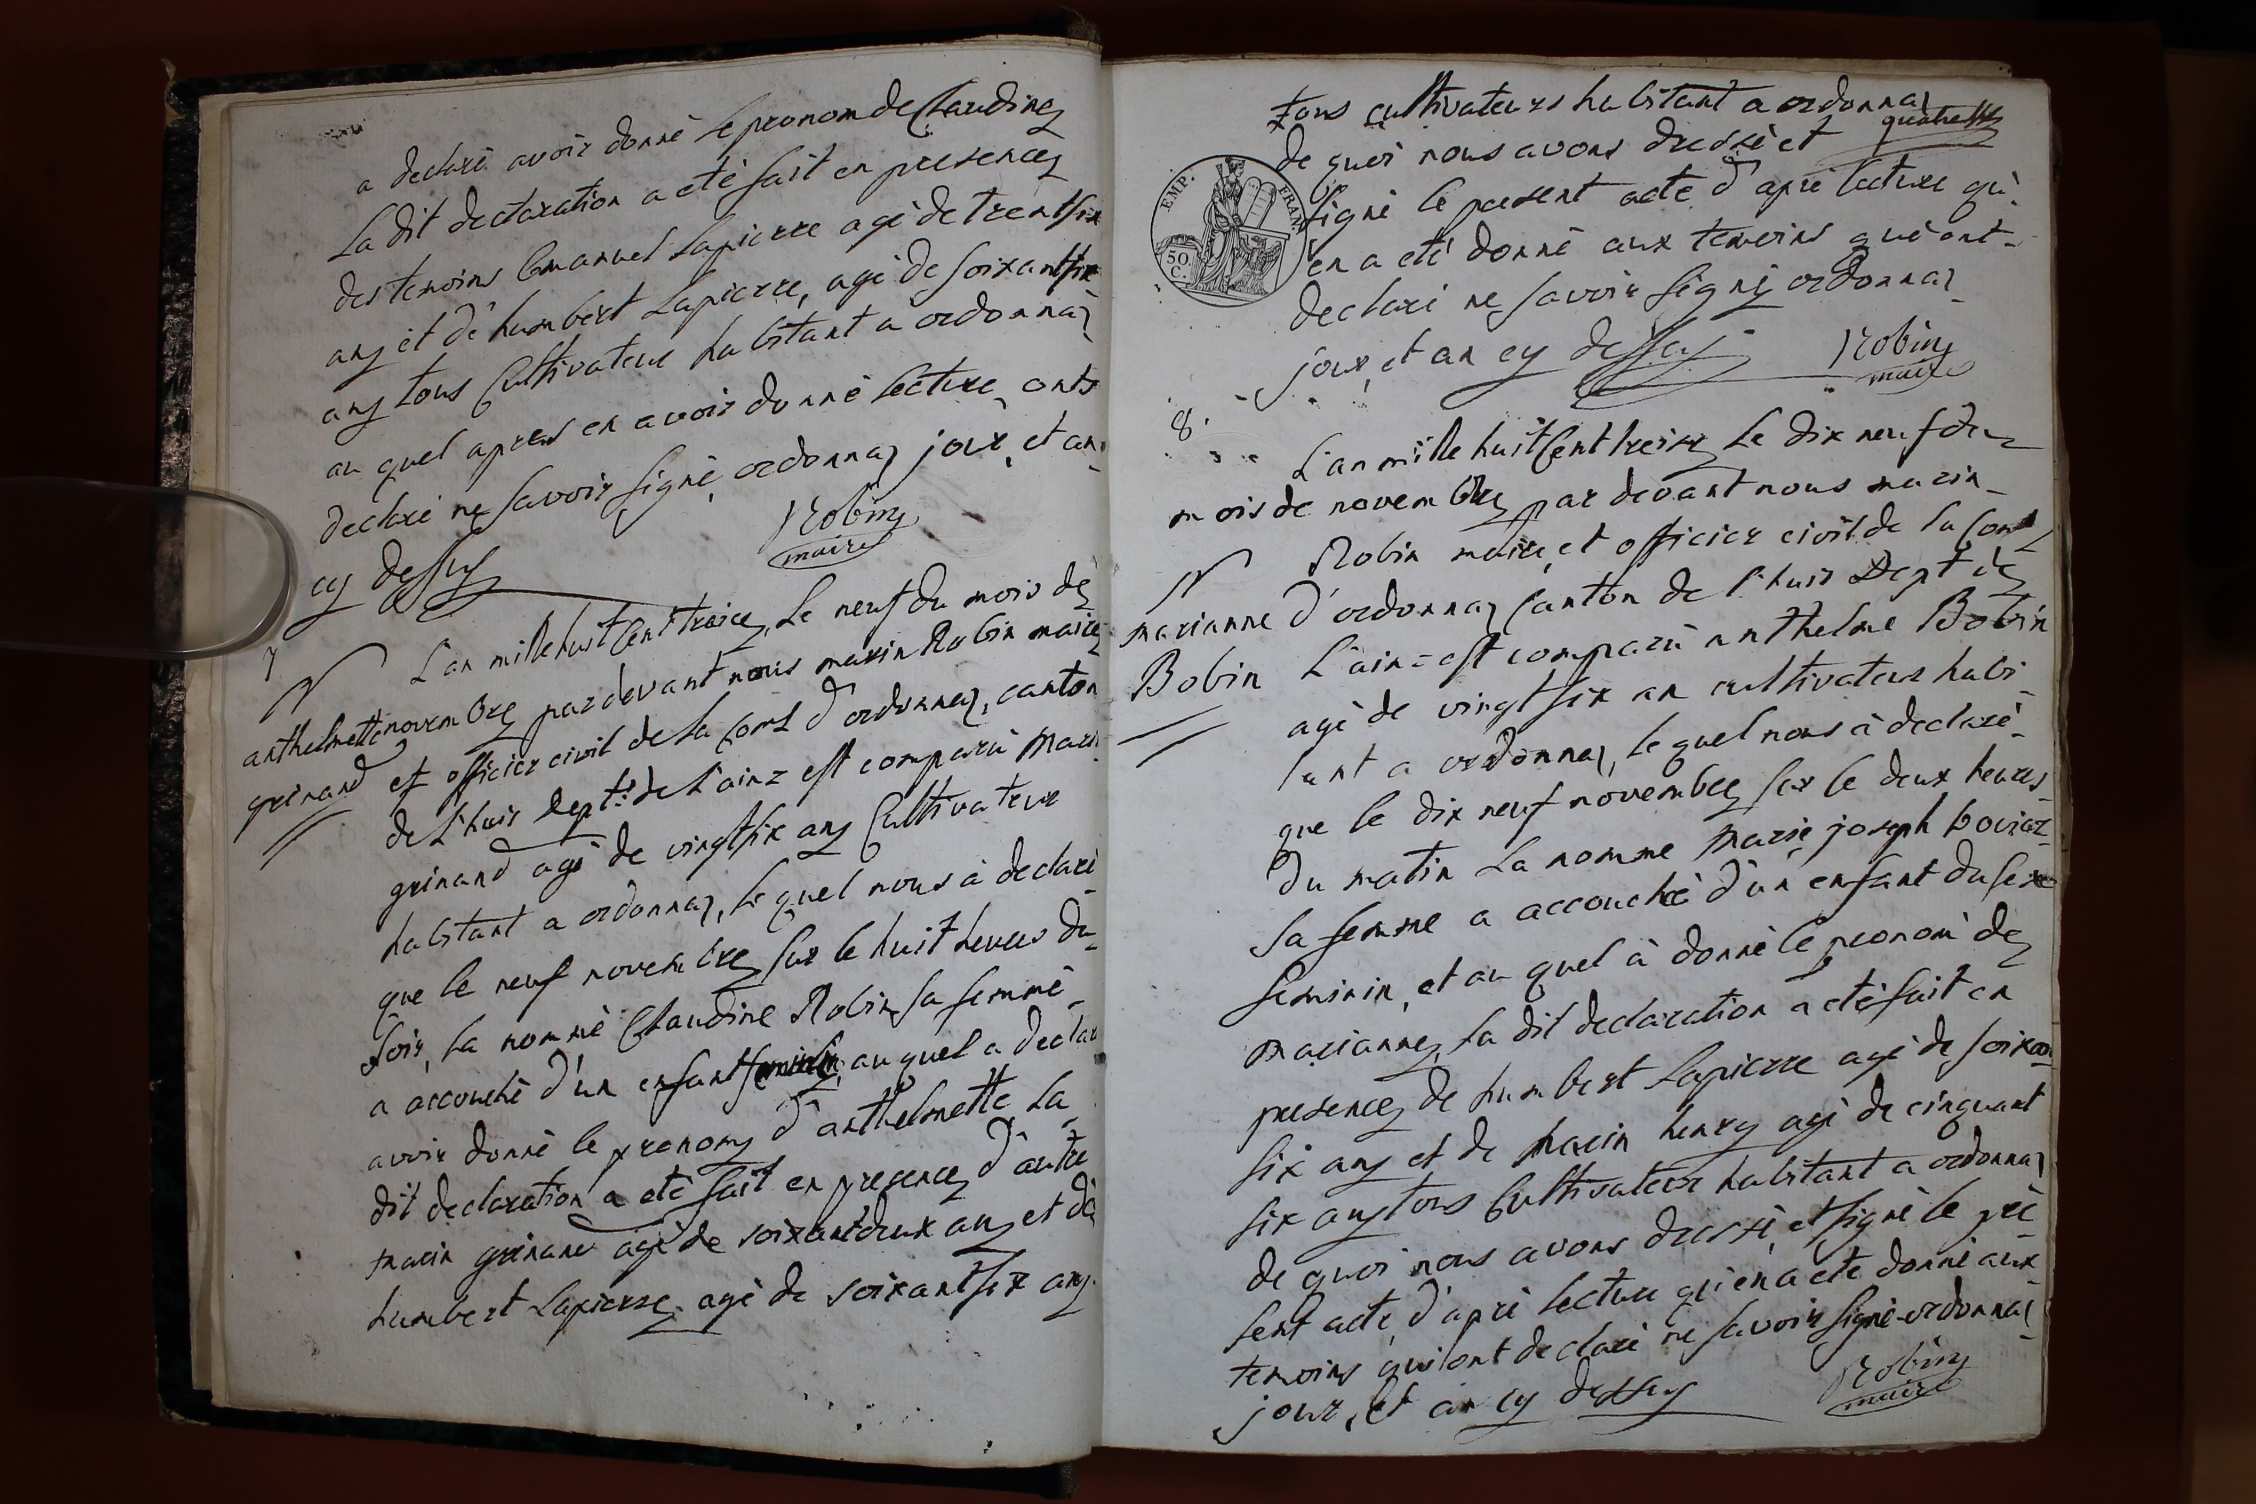 a declaré avoir donné le pronom de Claudine
La dit declaration a eté fait en presence
des temoins Emanuel Lapierre agé de trentsix
ans et de humbert Lapierre, agé de soixantsix
ans tous Cultivateur habitant a ordonnaz
au quel apres en avoir donné lecture, onts
declaré ne savoir signé ordonnaz jour, et an
cy dessus
Robin
maire
7
N
anthelmette
grinand
L'an mille huit Cent treize, le neuf du mois de
novembre par devant nous marin Robin maire
et officier civil de la Com.e d'ordonnaz, canton
de L'huis Dept.t de L'ain = est comparu marin
grinand agé de vingtsix ans Cultivateur
habitant a ordonnaz, le quel nous à declaré
que le neuf novembre sur le huit heures du
soir, la nommé Claudine Robin sa femme
a accouché d'un enfant feminin, auquel a declaré
avoir donné le prenom d'anthelmette La
dit declaration a eté fait en presence d'autre
marin grinand agé de soixantdeux ans et de
humbert Lapierre, agé de soixantsix ans
tous cultivateurs habitant a ordonnaz
quatre
de quoi nous avons dressé et
signé le present acte d'apré lecture qui
en a eté donné aux temoins qué ont
declaré ne savoir signé ordonnaz
jour, et an cy dessus
Robin
maire
EMP. FRAN.
50. C.
8.
L'an mille huit Cent treize le dix neuf du
mois de novembre par devant nous marin
N
marianne
Bobin
Robin maire, et officier civil de la Com.e
d'ordonnaz Canton de L'huis Dept de
L'ain = est comparu anthelme Bobin
agé de vingt six an cultivateur habi
tant a ordonnaz, le quel nous à declaré
que le dix neuf novembre sur le deux heures
du matin La nomme marie joseph boviaz
sa femme a accouché d'un enfant du sexe
feminin, et au quel à donné le pronom de
marianne, la dit declaration a eté fait en
presence de humbert Lapierre agé de soixan
six ans et de marin henry agé de cinquant
six ans tous Cultivateur habitant a ordonnaz
de quoi nous avons dressé, et signé le pré
sent acte, d'apré lecture qui en a ete donné aux
temoins qui ont declaré ne savoir signé ordonnaz
jour, et an cy dessus
Robin
maire